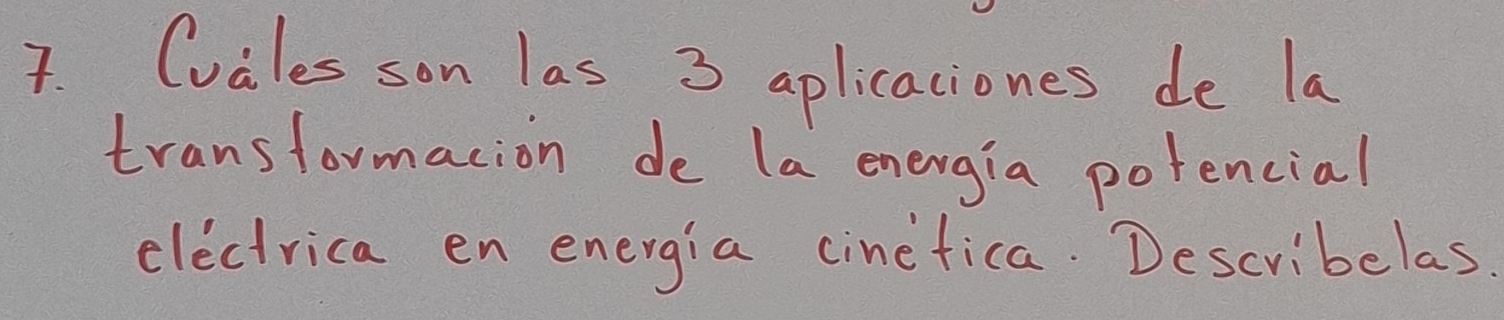 7. Cuáles son las 3 aplicaciones de la
transformación de la energía potencial
eléctrica en energía cinética. Descríbelas.